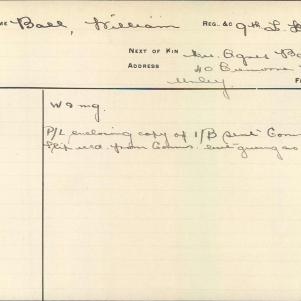 ME Ball, William REG. &C 9th L. H
NEXT OF KIN Mrs. Agnes Ba
ADDRESS 40
Unley
W & mg.
P/L enclosing copy of I/B sent Com
slip recd. from Coms.